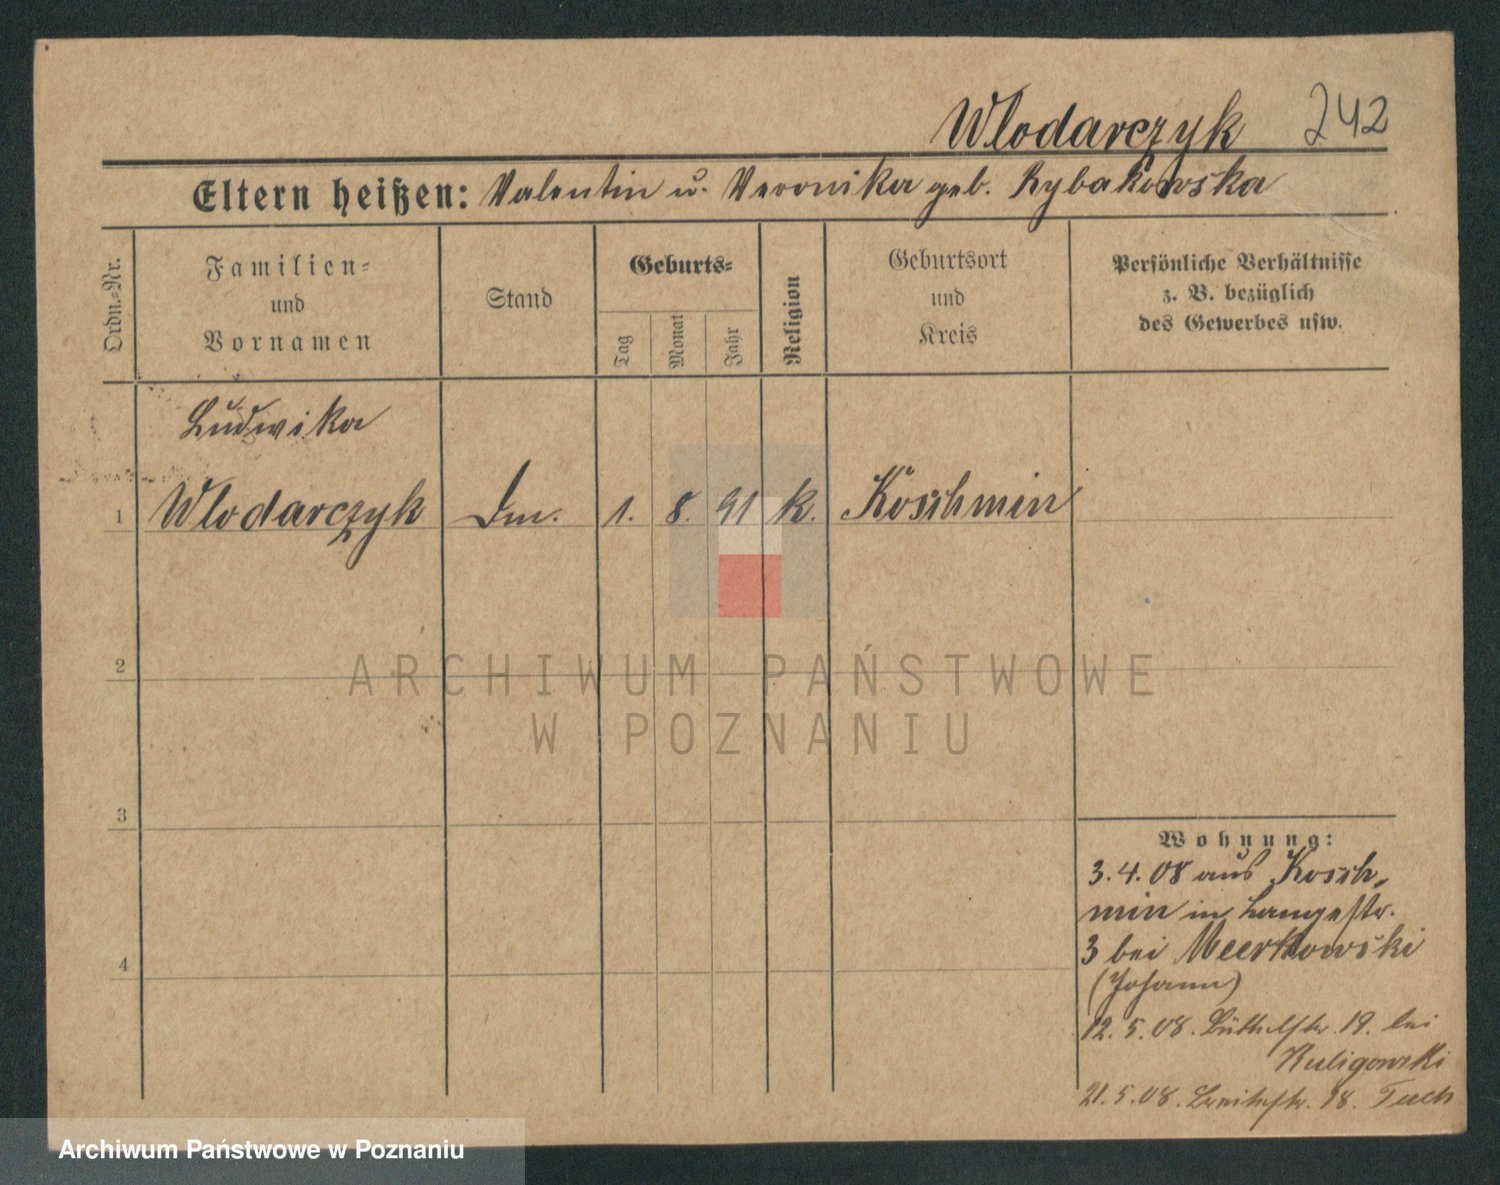 Wlodarczyk 242
Eltern heißen: Valentin u. Veronika geb. Rybakowska
Ordn.-Nr.
Familien-
und
Vornamen
Stand
Geburts-
Tag
Monat
Jahr
Religion
Geburtsort
und
Kreis
Persönliche Verhältnisse
z. B. bezüglich
des Gewerbes usw.
Ludwika
1 Wlodarczyk Dm. 1. 8. 91 k. Koschmin
2
ARCHIWUM PAŃSTWOWE
W POZNANIU
3
4
Wohnung:
3.4.08 aus Kosch-
min in Langestr.
3 bei
(Johann)
12.5.08. 19. bei
Kuligowski
21.5.08. Breitestr. 18.
Archiwum Państwowe w Poznaniu